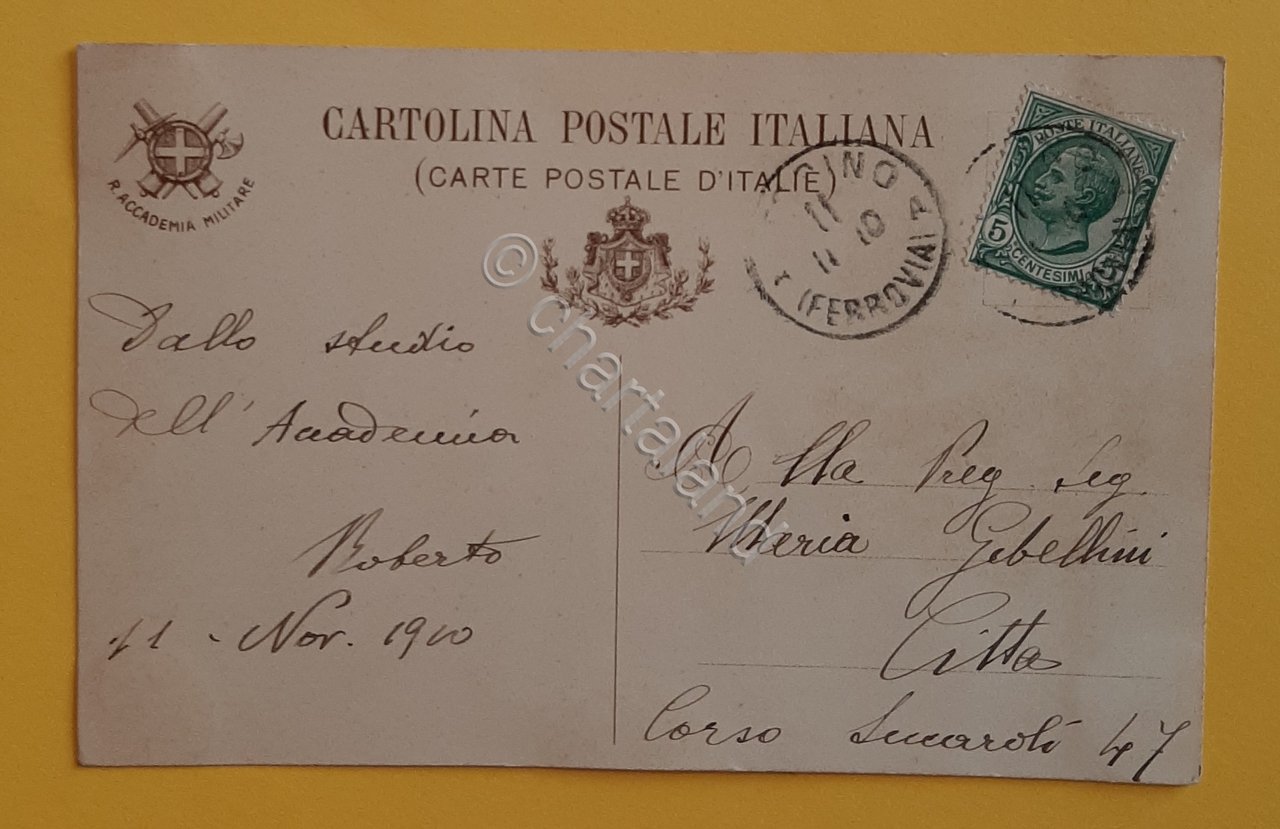 CARTOLINA POSTALE ITALIANA
(CARTE POSTALE D'ITALIE)
R. ACCADEMIA MILITARE
POSTE ITALIANE
5
CENTESIMI
11
11 10
(FERROVIA)
© chartaland
Dallo studio
dell' Accademia
Roberto
11 - Nov. 1910
Alla Preg. Seg.
Maria Gibellini
Citta
Corso 47